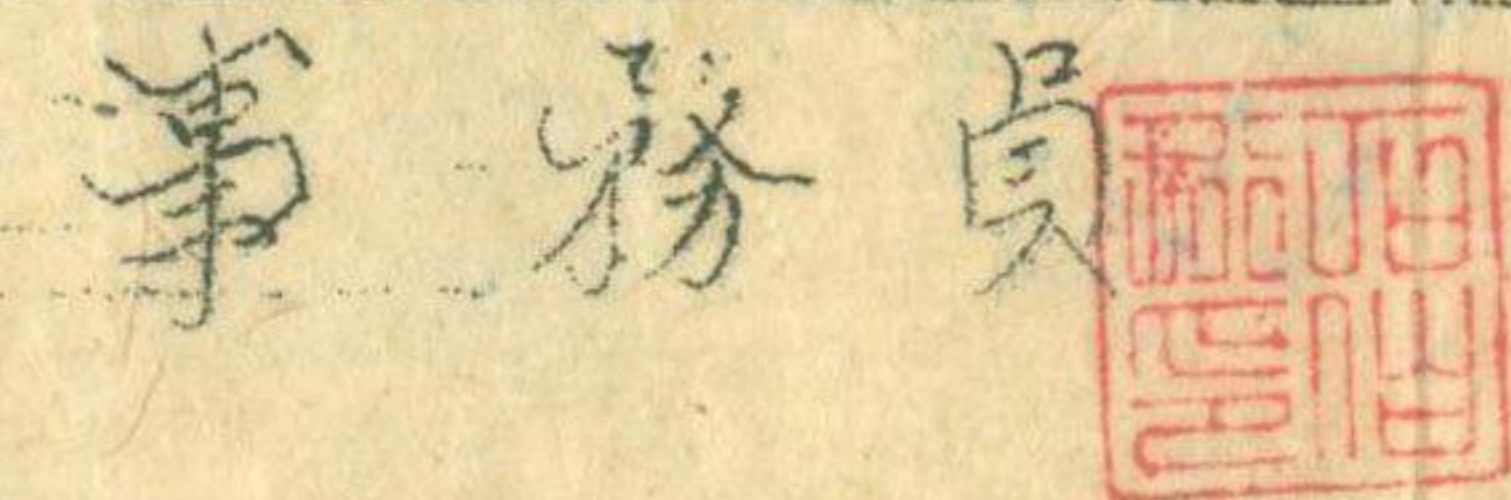 事務員